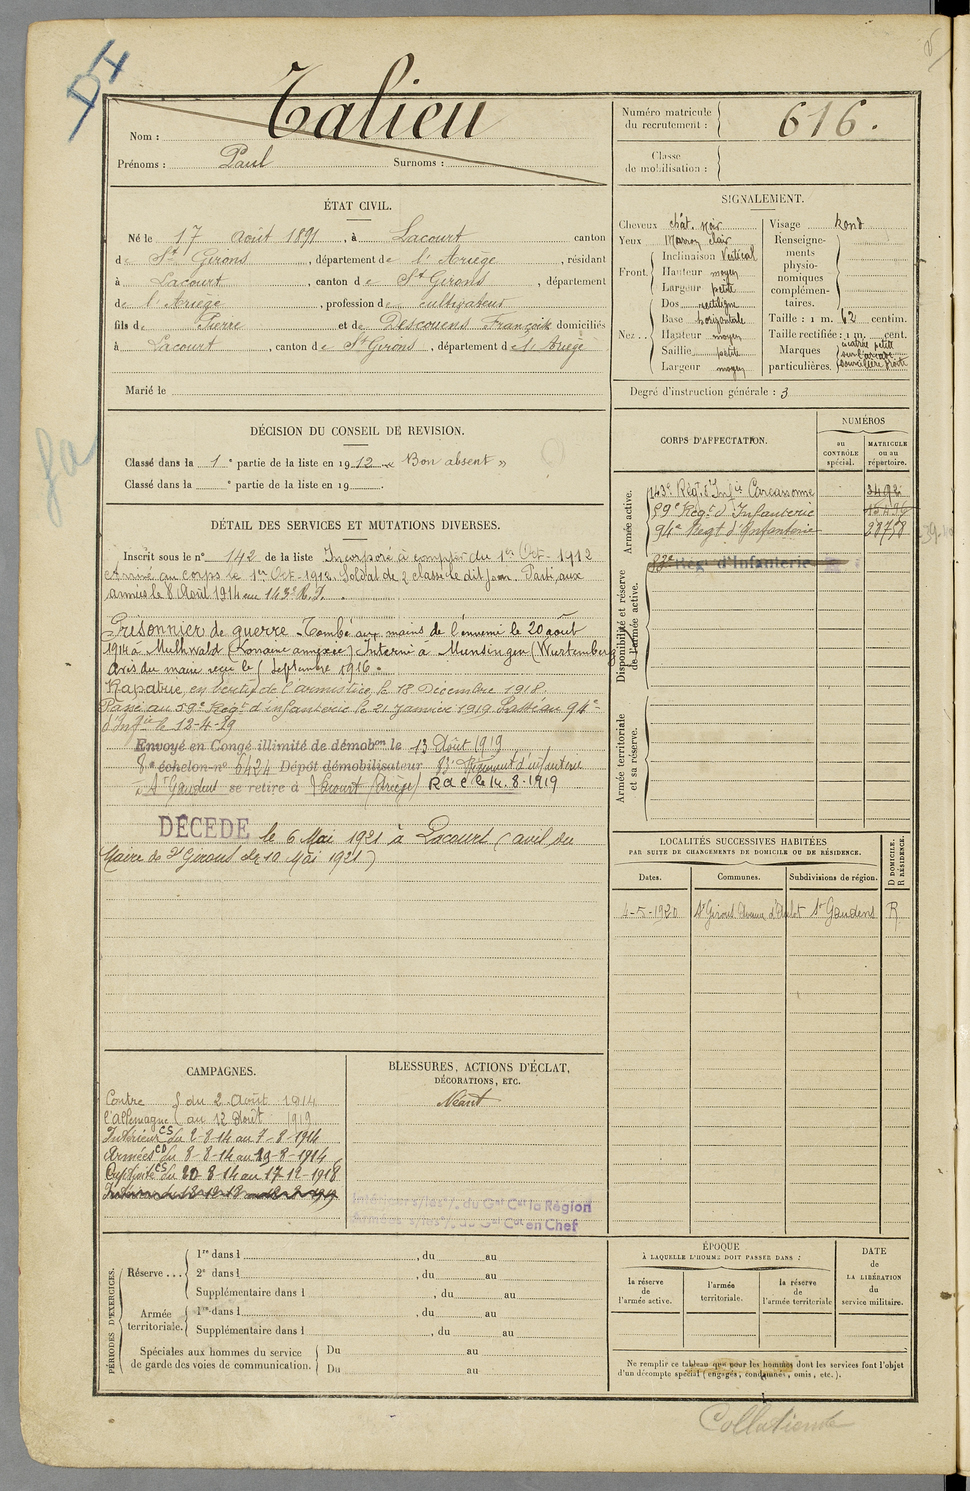 DH
Nom : Talieu
Prénoms : Paul Surnoms :
Numéro matricule du recrutement : 616.
Classe de mobilisation :
ÉTAT CIVIL.
Né le 17 Août 1891, à Lacourt canton
de St Girons, département de l'Ariège, résidant
à Lacourt, canton de St Girons, département
de l'Ariège, profession de cultivateur
fils de Pierre et de Descouens Françoise domiciliés
à Lacourt, canton de St Girons, département de l'Ariège
Marié le
SIGNALEMENT.
Cheveux chât. noir
Yeux Marron clair
Front. Inclinaison Vertical
Hauteur moyen
Largeur petite
Nez .. Dos rectiligne
Base horizontale
Hauteur moyen
Saillie petite
Largeur moyen
Visage Rond
Renseignements physionomiques complémentaires.
Taille : 1 m. 62 centim.
Taille rectifiée : 1 m. cent.
Marques particulières. cicatrice petite
sur l'arcade
sourcilière droite
Degré d'instruction générale : 3
DÉCISION DU CONSEIL DE REVISION.
Classé dans la 1e partie de la liste en 1912 « Bon absent »
Classé dans la e partie de la liste en 19 .
CORPS D'AFFECTATION.
NUMÉROS
au CONTRÔLE spécial.
MATRICULE ou au répertoire.
Armée active.
143e Régt d'Infie Carcassonne 3492
59e Régt d'Infanterie 15436
94e Régt d'Infanterie 28758
83e Rég. d'Infanterie
Disponibilité et réserve de l'armée active.
Armée territoriale et sa réserve.
DÉTAIL DES SERVICES ET MUTATIONS DIVERSES.
Inscrit sous le no 142 de la liste Incorporé à compter du 1er Oct. 1912
Arrivé au corps le 1er Oct. 1912. Soldat de 2e classe le dit jour. Parti aux
armées le 8 Août 1914 au 143e R.I.
Prisonnier de guerre. Tombé aux mains de l'ennemi le 20 août
1914 à Muhlwald (Lorraine annexée) Interné à Munsingen (Wurtemberg
avis du maire reçu le 1 Septembre 1916.
Rapatrié, en vertu de l'armistice, le 18 Décembre 1918.
Passé au 59e Régt d'infanterie le 21 Janvier 1919. Passé au 94e
d'Infie le 12-4-19
Envoyé en Congé illimité de démobon le 13 Août 1919
8e échelon no 6424 Dépôt démobilisateur 83e Régiment d'infanterie
à St Gaudens se retire à Lacourt (Ariège) R d C le 14.8.1919
DÉCÉDÉ le 6 Mai 1921 à Lacourt (avis du
Maire de St Girons du 10 Mai 1921)
LOCALITÉS SUCCESSIVES HABITÉES
PAR SUITE DE CHANGEMENTS DE DOMICILE OU DE RÉSIDENCE.
Dates. Communes. Subdivisions de région. D DOMICILE. R RÉSIDENCE.
4-5-1920 St Girons Avenue d'Aulot St Gaudens R
CAMPAGNES.
Contre du 2 Août 1914
l'Allemagne au 12 Août 1919
Intérieur CS du 2-8-14 au 7-8-1914
Armées CD du 8-8-14 au 19-8-1914
Captivité CS du 20-8-14 au 17-12-1918
BLESSURES, ACTIONS D'ÉCLAT,
DÉCORATIONS, ETC.
Néant
du Gal Cdt la Région
du Gal Cdt en Chef
PÉRIODES D'EXERCICES.
Réserve ... 1re dans l , du au
2e dans l , du au
Supplémentaire dans l , du au
Armée territoriale. 1re dans l , du au
Supplémentaire dans l , du au
Spéciales aux hommes du service de garde des voies de communication. Du au
Du au
ÉPOQUE
À LAQUELLE L'HOMME DOIT PASSER DANS :
la réserve de l'armée active.
l'armée territoriale.
la réserve de l'armée territoriale
DATE de LA LIBÉRATION du service militaire.
Ne remplir ce tableau que pour les hommes dont les services font l'objet
d'un décompte spécial (engagés, condamnés, omis, etc.).